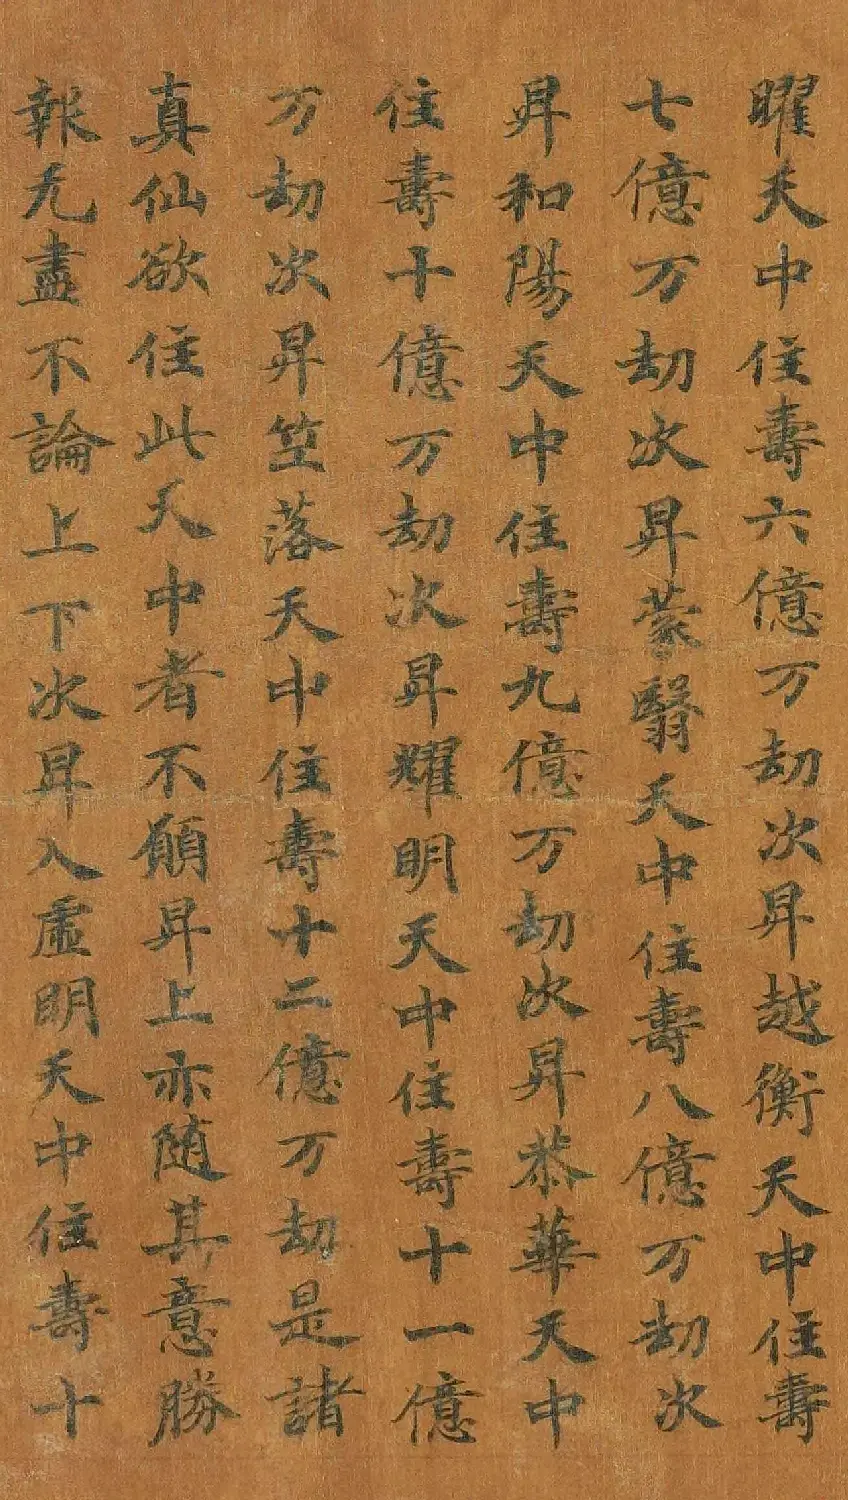 曜天中住壽六億万劫次昇越衡天中住壽
七億万劫次昇蒙翳天中住壽八億万劫次
昇和陽天中住壽九億万劫次昇恭華天中
住壽十億万劫次昇耀明天中住壽十一億
万劫次昇笁落天中住壽十二億万劫是諸
真仙欲住此天中者不願昇上亦随其意勝
報无盡不論上下次昇入虛明天中住壽十